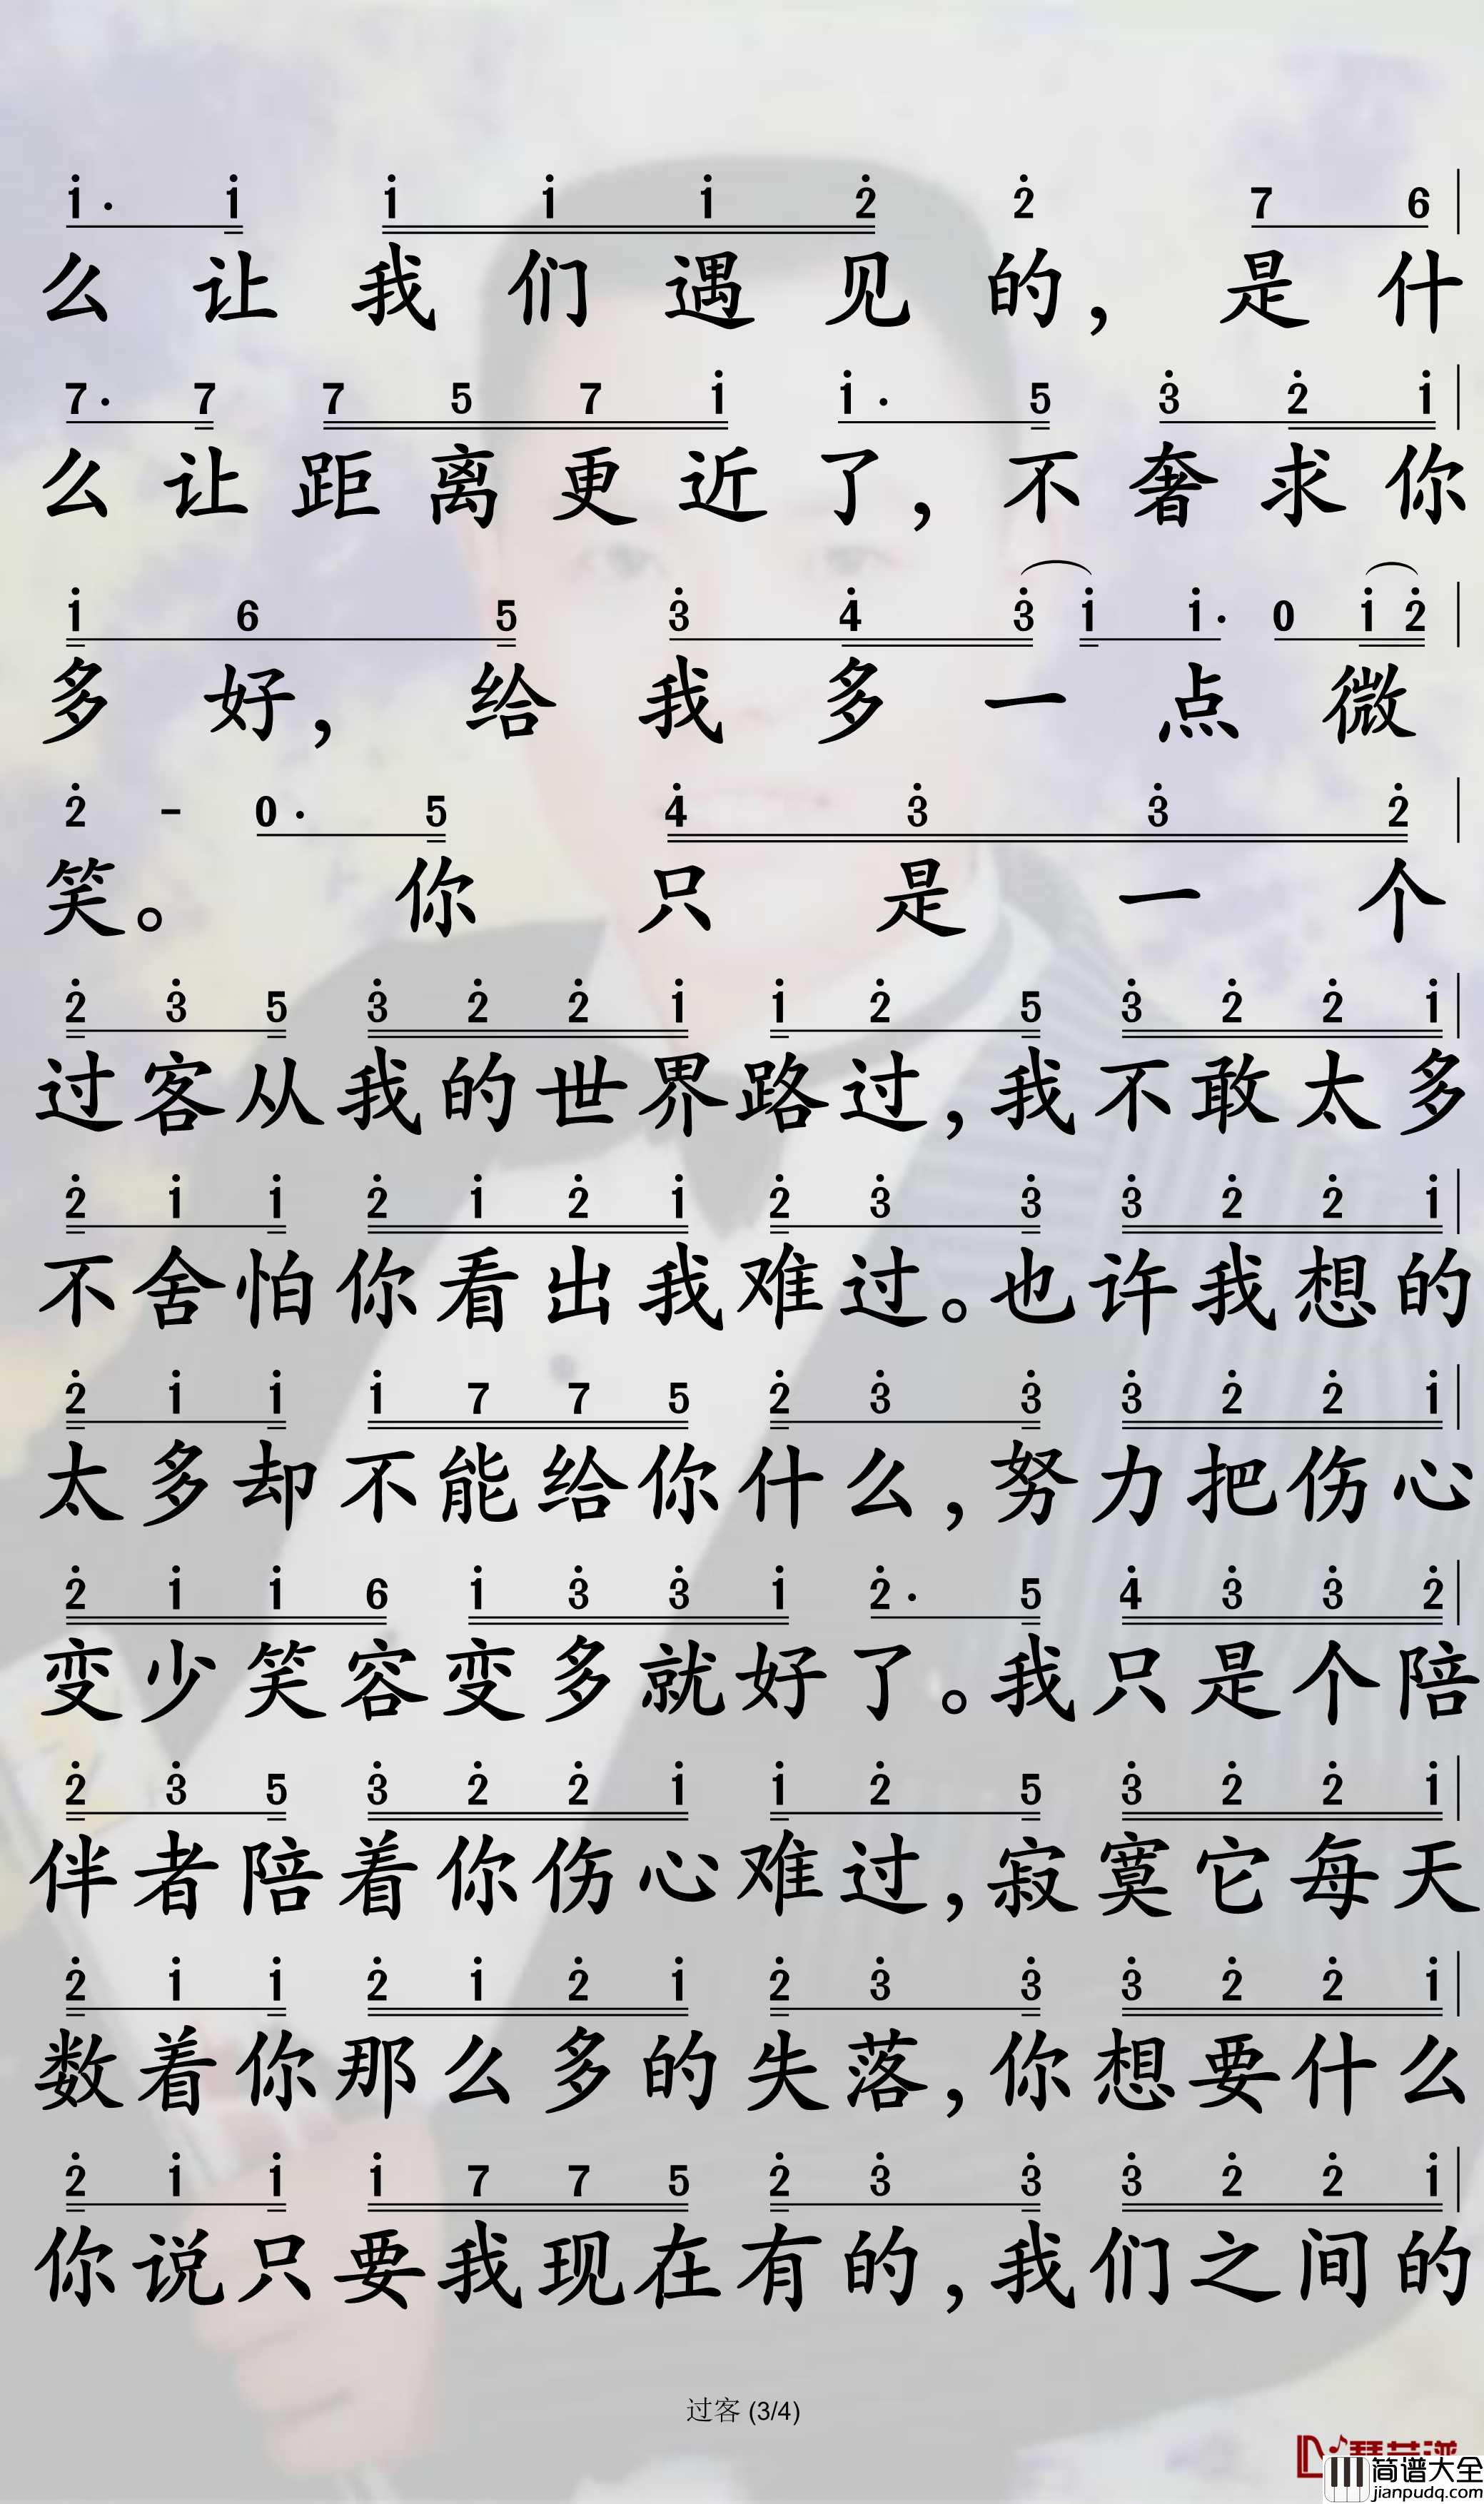 i· i i i i 2̇ 2̇ 7 6
么 让 我 们 遇 见 的, 是 什
7· 7 7 5 7 i i· 5 3̇ 2̇ i
么 让 距 离 更 近 了, 不 奢 求 你
i 6 5 3̇ 4̇ 3̇ i i· 0 i 2̇
多 好, 给 我 多 一 点 微
2̇ - 0· 5 4̇ 3̇ 3̇ 2̇
笑。 你 只 是 一 个
2̇ 3̇ 5 3̇ 2̇ 2̇ i i 2̇ 5 3̇ 2̇ 2̇ i
过客从我的世界路过,我不敢太多
2̇ i i 2̇ i 2̇ i 2̇ 3̇ 3̇ 3̇ 2̇ 2̇ i
不舍怕你看出我难过。也许我想的
2̇ i i i 7 7 5 2̇ 3̇ 3̇ 3̇ 2̇ 2̇ i
太多却不能给你什么,努力把伤心
2̇ i i 6 i 3̇ 3̇ i 2̇· 5 4̇ 3̇ 3̇ 2̇
变少笑容变多就好了。我只是个陪
2̇ 3̇ 5 3̇ 2̇ 2̇ i i 2̇ 5 3̇ 2̇ 2̇ i
伴者陪着你伤心难过,寂寞它每天
2̇ i i 2̇ i 2̇ i 2̇ 3̇ 3̇ 3̇ 2̇ 2̇ i
数着你那么多的失落,你想要什么
2̇ i i i 7 7 5 2̇ 3̇ 3̇ 3̇ 2̇ 2̇ i
你说只要我现在有的,我们之间的
过客 (3/4)
简谱大全
jianpudq.com